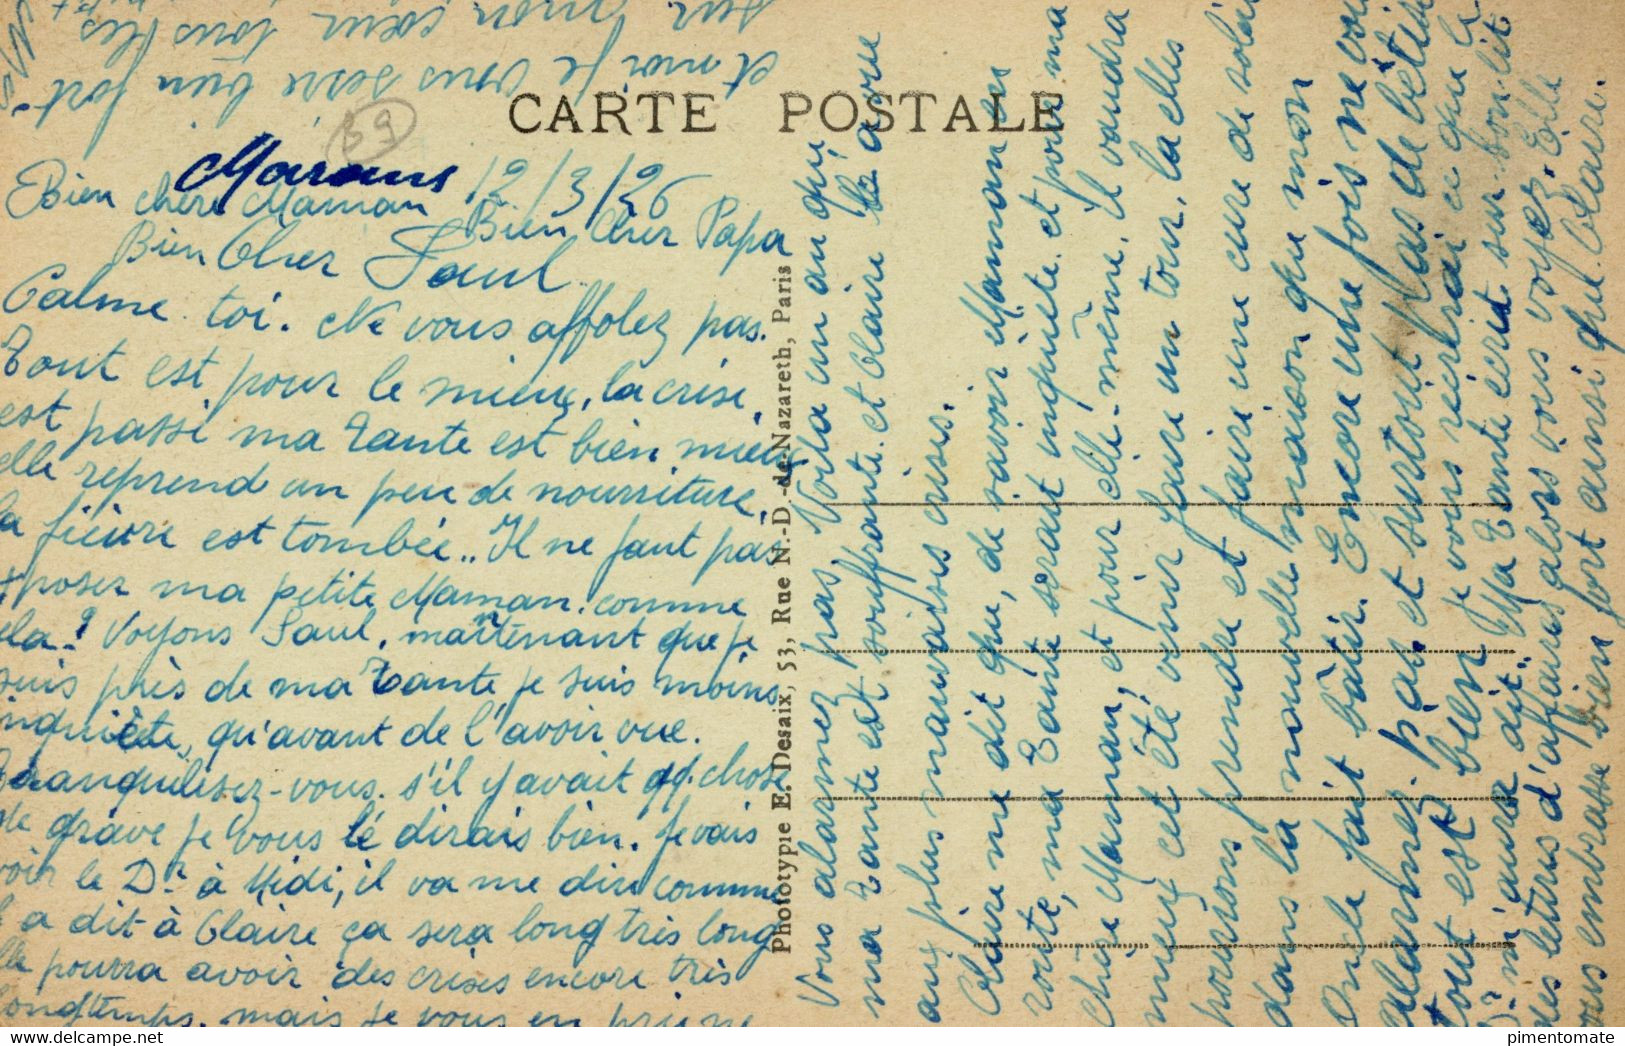 CARTE POSTALE
39
Marans 12/3/26
Bien chère Maman Bien Cher Papa
Bien Cher Paul
Calme toi. Ne vous affolez pas.
Tout est pour le mieux, la crise
est passé ma Tante est bien mieux
elle reprend un peu de nourriture,
la fièvre est tombée.. Il ne faut pas
poser ma petite Maman. comme
ela? Voyons Paul, maintenant que je
suis près de ma Tante je suis moins
inquiète, qu'avant de l'avoir vue.
Tranquilisez-vous. s'il y avait qq. chose
de grave je vous le dirais bien. Je vais
voir le Dr à Midi, il va me dire comme
l a dit à Claire ça sera long très long
lle pourra avoir des crises encore très
longtemps. mais je vous en prie ne
Vous alarmez pas. Voila un an que
ma Tante est souffrante. et Claire l'a vue
aux plus mauvaises crises.
Claire me dit que, de savoir Maman en
route, ma Tante serait inquiète. et pour ma
Chère Maman, et pour elle-même. Il vaudra
mieux cet été venir faire un tour, là elles
pourrons prendre et faire une cure de soleil
dans la nouvelle maison que mon
Oncle fait bâtir. Encore une fois ne vous
alarmez pas et surtout Pas de bêtises
tout est bien je vous écrirai ce que le
Dr m'aura dit.. Ma Tante écrit sur son lit
des lettres d'affaires alors vous voyez. Elle
vous embrasse bien fort ainsi que Claire.
et moi je vous serre bien fort
sur mon cœur tous les
Photoype E. Desaix, 53, Rue N.-D.-de-Nazareth, Paris
pimentomate